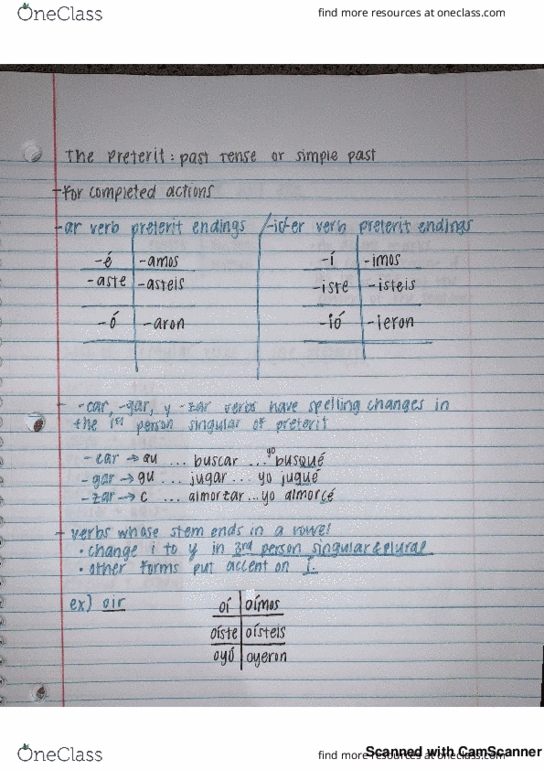 OneClass
find more resources at oneclass.com
The Preterit: past tense or simple past
-for completed actions
-ar verb preterit endings /-ir/-er verb preterit endings
-é -amos -í -imos
-aste -asteis -iste -isteis
-ó -aron -ió -ieron
-car, -gar, y -zar verbs have spelling changes in
the 1st person singular of preterit
-car → qu ... buscar ... yo busqué
-gar → gu ... jugar ... yo jugué
-zar → c ... almorzar ... yo almorcé
- verbs whose stem ends in a vowel
• change i to y in 3rd person singular & plural
• other forms put accent on í.
ex) oir
oí oímos
oíste oísteis
oyó oyeron
OneClass
find more resources at oneclass.com
Scanned with CamScanner